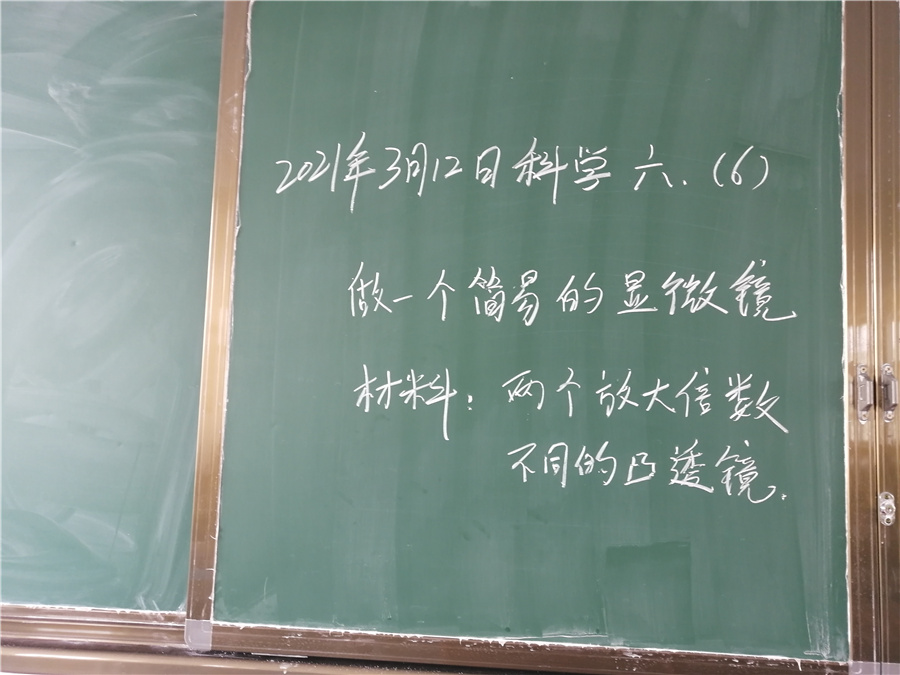 2021年3月12日科学 六.(6)
做一个简易的显微镜
材料:两个放大倍数
不同的凸透镜.